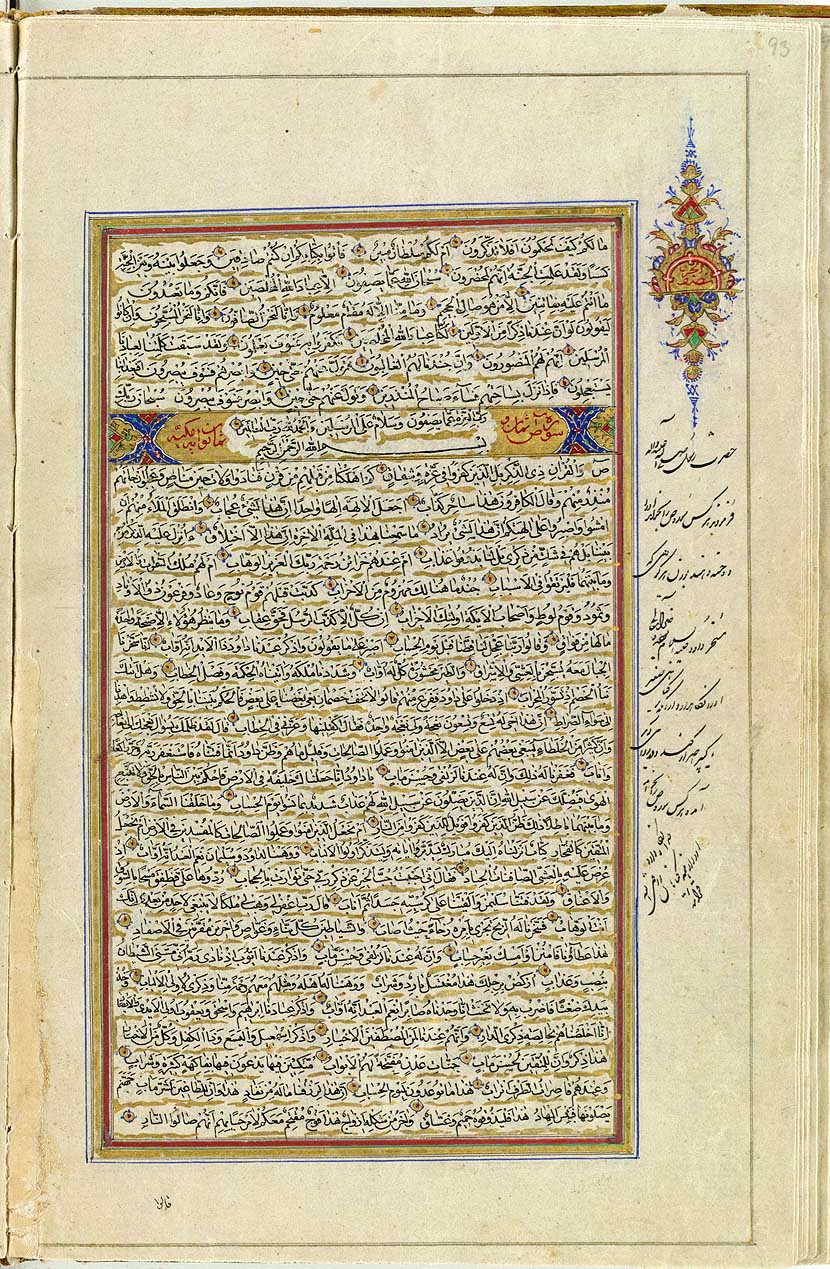 93
ما لكم كيف تحكمون افلا تذكرون ام لكم سلطان مبين فأتوا بكتابكم ان كنتم صادقين وجعلوا بينه وبين الجنة
نسبا ولقد علمت الجنة انهم لمحضرون سبحان الله عما يصفون الا عباد الله المخلصين فانكم وما تعبدون
ما انتم عليه بفاتنين الا من هو صال الجحيم وما منا الا له مقام معلوم وانا لنحن الصافون وانا لنحن المسبحون وان كانوا
ليقولون لو ان عندنا ذكرا من الاولين لكنا عباد الله المخلصين فكفروا به فسوف يعلمون ولقد سبقت كلمتنا لعبادنا
المرسلين انهم لهم المنصورون وان جندنا لهم الغالبون فتول عنهم حتى حين وابصرهم فسوف يبصرون افبعذابنا
يستعجلون فاذا نزل بساحتهم فساء صباح المنذرين وتول عنهم حتى حين وابصر فسوف يبصرون سبحان ربك
رب العزة عما يصفون وسلام على المرسلين والحمد لله رب العالمين
سورة ص ثمان و ثمانون اية مكية
بسم الله الرحمن الرحيم
ص والقران ذي الذكر بل الذين كفروا في عزة وشقاق كم اهلكنا من قبلهم من قرن فنادوا ولات حين مناص وعجبوا ان جاءهم
منذر منهم وقال الكافرون هذا ساحر كذاب اجعل الالهة الها واحدا ان هذا لشيء عجاب وانطلق الملأ منهم ان
امشوا واصبروا على الهتكم ان هذا لشيء يراد ما سمعنا بهذا في الملة الاخرة ان هذا الا اختلاق ءانزل عليه الذكر من
بيننا بل هم في شك من ذكري بل لما يذوقوا عذاب ام عندهم خزائن رحمة ربك العزيز الوهاب ام لهم ملك السموات والارض
وما بينهما فليرتقوا في الاسباب جند ما هنالك مهزوم من الاحزاب كذبت قبلهم قوم نوح وعاد وفرعون ذو الاوتاد
وثمود وقوم لوط واصحاب الايكة اولئك الاحزاب ان كل الا كذب الرسل فحق عقاب وما ينظر هؤلاء الا صيحة واحدة
ما لها من فواق وقالوا ربنا عجل لنا قطنا قبل يوم الحساب اصبر على ما يقولون واذكر عبدنا داود ذا الايد انه اواب انا سخرنا
الجبال معه يسبحن بالعشي والاشراق والطير محشورة كل له اواب وشددنا ملكه واتيناه الحكمة وفصل الخطاب وهل اتيك
نبأ الخصم اذ تسوروا المحراب اذ دخلوا على داود ففزع منهم قالوا لا تخف خصمان بغى بعضنا على بعض فاحكم بيننا بالحق ولا تشطط واهدنا
الى سواء الصراط ان هذا اخي له تسع وتسعون نعجة ولي نعجة واحدة فقال اكفلنيها وعزني في الخطاب قال لقد ظلمك بسؤال نعجتك الى نعاجه
وان كثيرا من الخلطاء ليبغي بعضهم على بعض الا الذين امنوا وعملوا الصالحات وقليل ما هم وظن داود انما فتناه فاستغفر ربه وخر راكعا
واناب فغفرنا له ذلك وان له عندنا لزلفى وحسن ماب يا داود انا جعلناك خليفة في الارض فاحكم بين الناس بالحق ولا تتبع
الهوى فيضلك عن سبيل الله ان الذين يضلون عن سبيل الله لهم عذاب شديد بما نسوا يوم الحساب وما خلقنا السماء والارض
وما بينهما باطلا ذلك ظن الذين كفروا فويل للذين كفروا من النار ام نجعل الذين امنوا وعملوا الصالحات كالمفسدين في الارض ام نجعل
المتقين كالفجار كتاب انزلناه اليك مبارك ليدبروا اياته وليتذكر اولوا الالباب ووهبنا لداود سليمان نعم العبد انه اواب اذ
عرض عليه بالعشي الصافنات الجياد فقال اني احببت حب الخير عن ذكر ربي حتى توارت بالحجاب ردوها علي فطفق مسحا بالسوق
والاعناق ولقد فتنا سليمن والقينا على كرسيه جسدا ثم اناب قال رب اغفر لي وهب لي ملكا لا ينبغي لاحد من بعدي انك
انت الوهاب فسخرنا له الريح تجري بامره رخاء حيث اصاب والشياطين كل بناء وغواص واخرين مقرنين في الاصفاد
هذا عطاؤنا فامنن او امسك بغير حساب وان له عندنا لزلفى وحسن ماب واذكر عبدنا ايوب اذ نادى ربه اني مسني الشيطان
بنصب وعذاب اركض برجلك هذا مغتسل بارد وشراب ووهبنا له اهله ومثلهم معهم رحمة منا وذكرى لاولي الالباب وخذ
بيدك ضغثا فاضرب به ولا تحنث انا وجدناه صابرا نعم العبد انه اواب واذكر عبادنا ابرهيم واسحق ويعقوب اولي الايدي والابصار
انا اخلصناهم بخالصة ذكرى الدار وانهم عندنا لمن المصطفين الاخيار واذكر اسمعيل واليسع وذا الكفل وكل من الاخيار
هذا ذكر وان للمتقين لحسن ماب جنات عدن مفتحة لهم الابواب متكئين فيها يدعون فيها بفاكهة كثيرة وشراب
وعندهم قاصرات الطرف اتراب هذا ما توعدون ليوم الحساب ان هذا لرزقنا ما له من نفاد هذا وان للطاغين لشر ماب جهنم
يصلونها فبئس المهاد هذا فليذوقوه حميم وغساق واخر من شكله ازواج هذا فوج مقتحم معكم لا مرحبا بهم انهم صالوا النار
قالوا